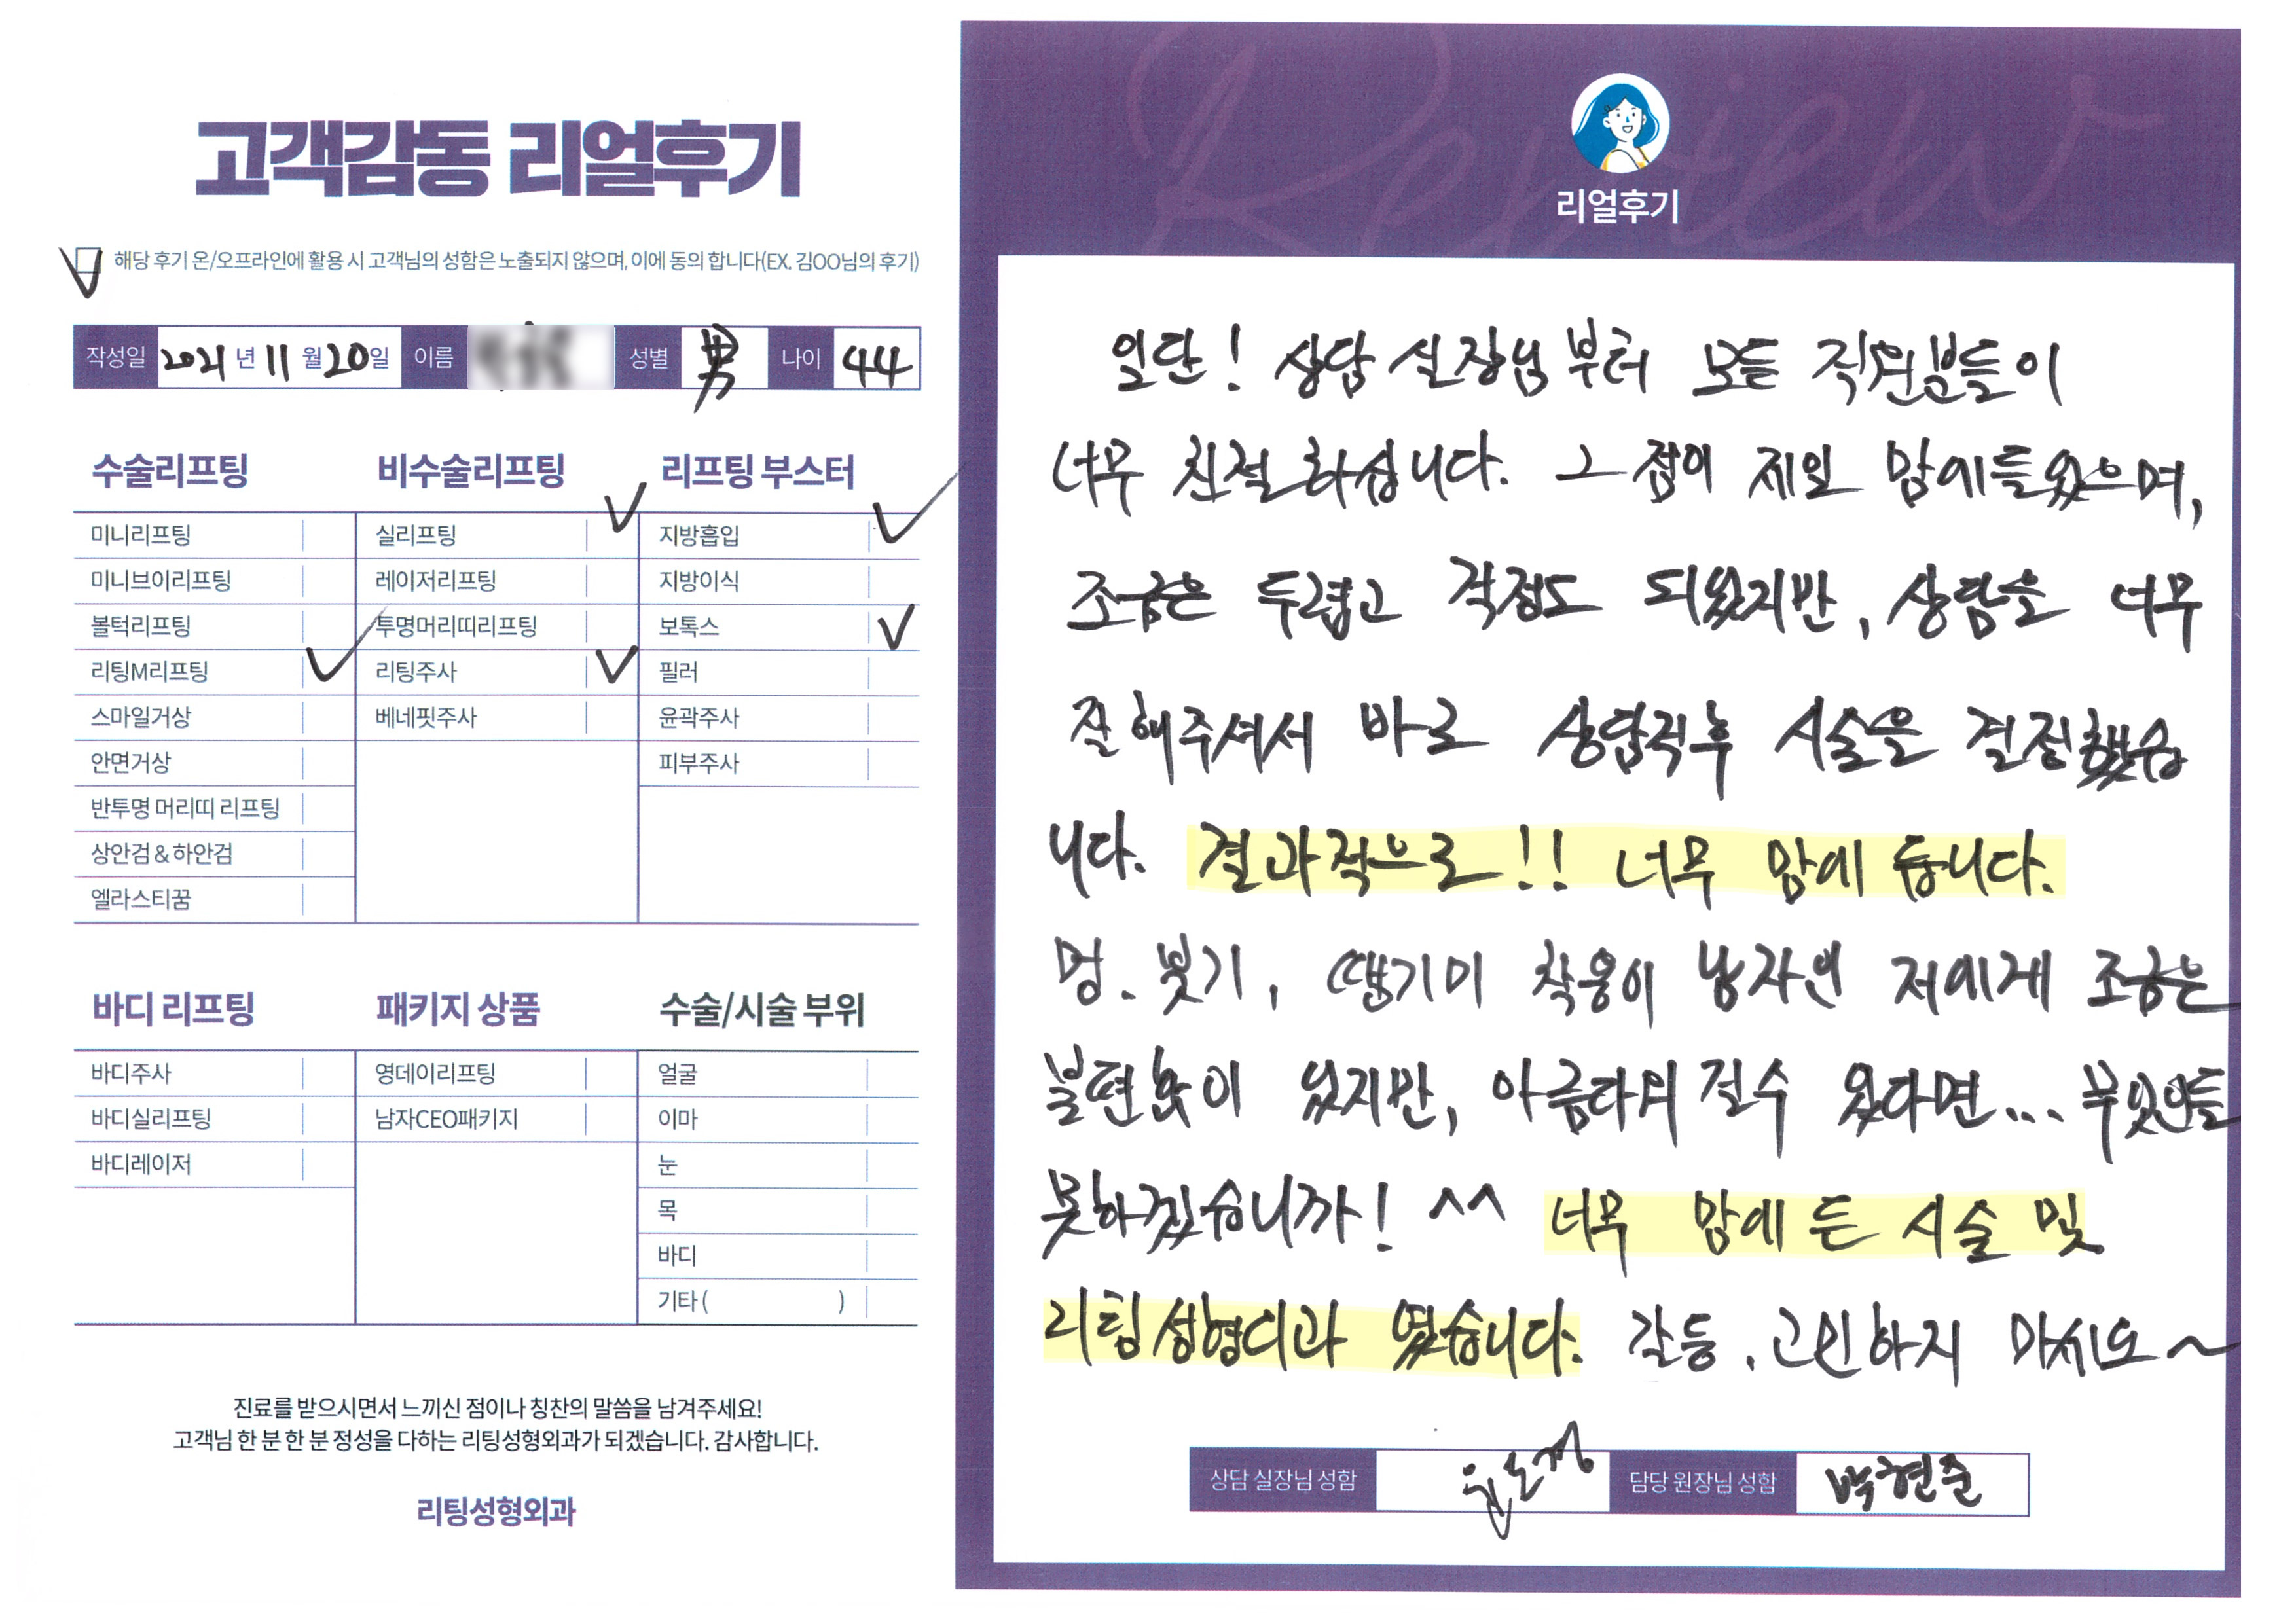 고객감동 리얼후기
해당 후기 온/오프라인에 활용 시 고객님의 성함은 노출되지 않으며, 이에 동의 합니다(EX. 김OO님의 후기)
작성일 2021 년 11 월 20 일 이름 성별 男 나이 44
수술리프팅
미니리프팅
미니브이리프팅
볼턱리프팅
리팅M리프팅
스마일거상
안면거상
반투명 머리띠 리프팅
상안검 & 하안검
엘라스티꿈
비수술리프팅
실리프팅
레이저리프팅
투명머리띠리프팅
리팅주사
베네핏주사
리프팅 부스터
지방흡입
지방이식
보톡스
필러
윤곽주사
피부주사
바디 리프팅
바디주사
바디실리프팅
바디레이저
패키지 상품
영데이리프팅
남자CEO패키지
수술/시술 부위
얼굴
이마
눈
목
바디
기타 ( )
진료를 받으시면서 느끼신 점이나 칭찬의 말씀을 남겨주세요!
고객님 한 분 한 분 정성을 다하는 리팅성형외과가 되겠습니다. 감사합니다.
리팅성형외과
Review
리얼후기
일단! 상담 실장님부터 모든 직원분들이
너무 친절하십니다. 그 점이 제일 맘에들었으며,
조금은 두렵고 걱정도 되었지만, 상담을 너무
잘 해주셔서 바로 상담직후 시술을 결정했습
니다. 결과적으로!! 너무 맘에 듭니다.
멍. 붓기, 땡기미 착용이 남자인 저에게 조금은
불편함이 있지만, 아름다워 질수 있다면... 무엇인들
못하겠습니까! ^^ 너무 맘에 든 시술 및
리팅성형외과 였습니다. 갈등, 고민하지 마세요~
상담 실장님 성함 담당 원장님 성함 박현준